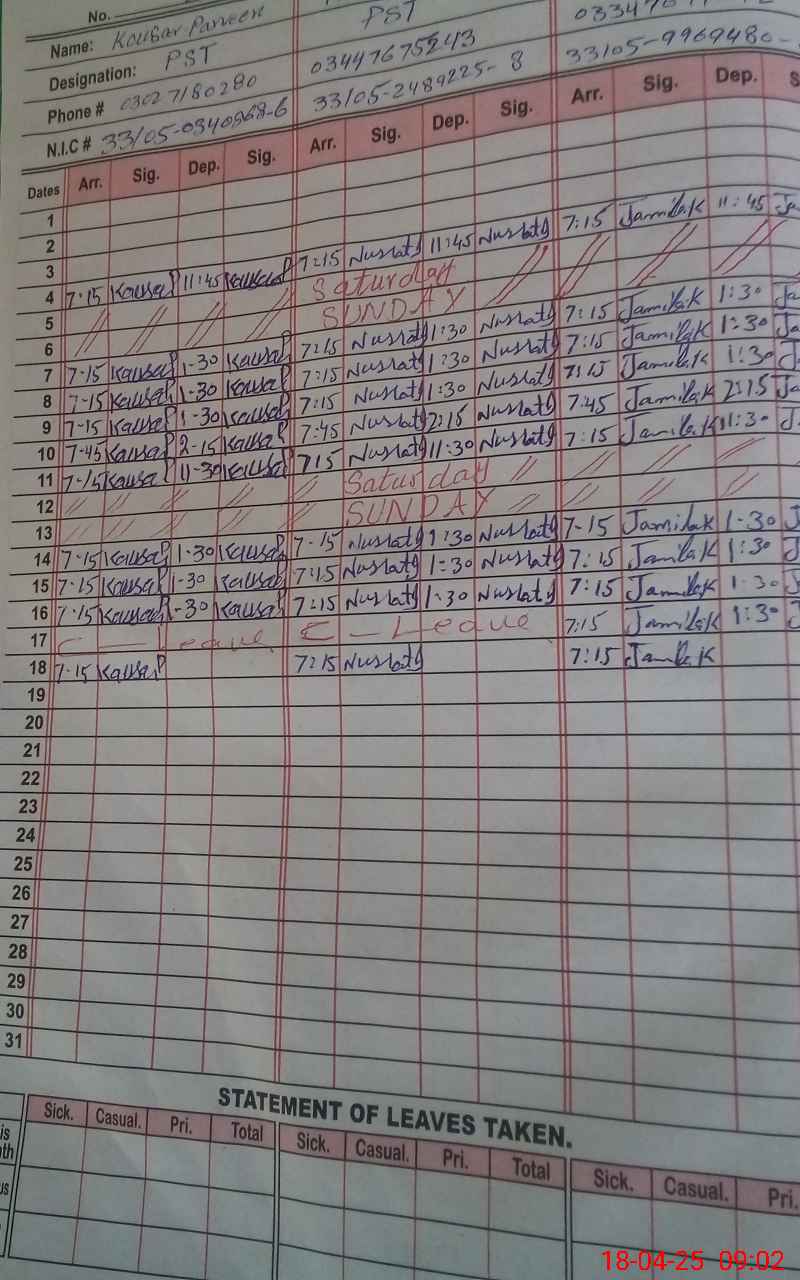 No.
Name: Kousar Parveen
Designation: PST PST
Phone # 03027180280 03447675243 0334
N.I.C # 33105-0340568-6 33105-2489225-8 33105-9969480-
Dates Arr. Sig. Dep. Sig. Arr. Sig. Dep. Sig. Arr. Sig. Dep. S
1
2
3
4 7-15 Kausar P 11:45 Kausar P 7:15 Nusrat 11:45 Nusrat 7:15 Jamila K 11:45 Ja
5 Saturday
6 SUNDAY
7 7-15 Kausar P 1-30 Kausar P 7:15 Nusrat 1:30 Nusrat 7:15 Jamila K 1:30 Ja
8 7-15 Kausar P 1-30 Kausar P 7:15 Nusrat 1:30 Nusrat 7:15 Jamila K 1:30 Ja
9 7-15 Kausar P 1-30 Kausar P 7:15 Nusrat 1:30 Nusrat 7:15 Jamila K 1:30 J
10 7-45 Kausar P 2-15 Kausar P 7:45 Nusrat 2:15 Nusrat 7:45 Jamila K 2:15 Ja
11 7-15 Kausar P 11-30 Kausar P 7:15 Nusrat 11:30 Nusrat 7:15 Jamila K 11:30 J
12 Saturday
13 SUNDAY
14 7-15 Kausar P 1-30 Kausar P 7-15 Nusrat 1:30 Nusrat 7-15 Jamila K 1-30 J
15 7-15 Kausar P 1-30 Kausar P 7:15 Nusrat 1:30 Nusrat 7:15 Jamila K 1:30 J
16 7-15 Kausar P 1-30 Kausar P 7:15 Nusrat 1:30 Nusrat 7:15 Jamila K 1-30 J
17 C-Leave C-Leave 7:15 Jamila K 1:30 J
18 7-15 Kausar P 7:15 Nusrat 7:15 Jamila K
19
20
21
22
23
24
25
26
27
28
29
30
31
STATEMENT OF LEAVES TAKEN.
Sick. Casual. Pri. Total Sick. Casual. Pri. Total Sick. Casual. Pri.
is
nth
us
18-04-25 09:02